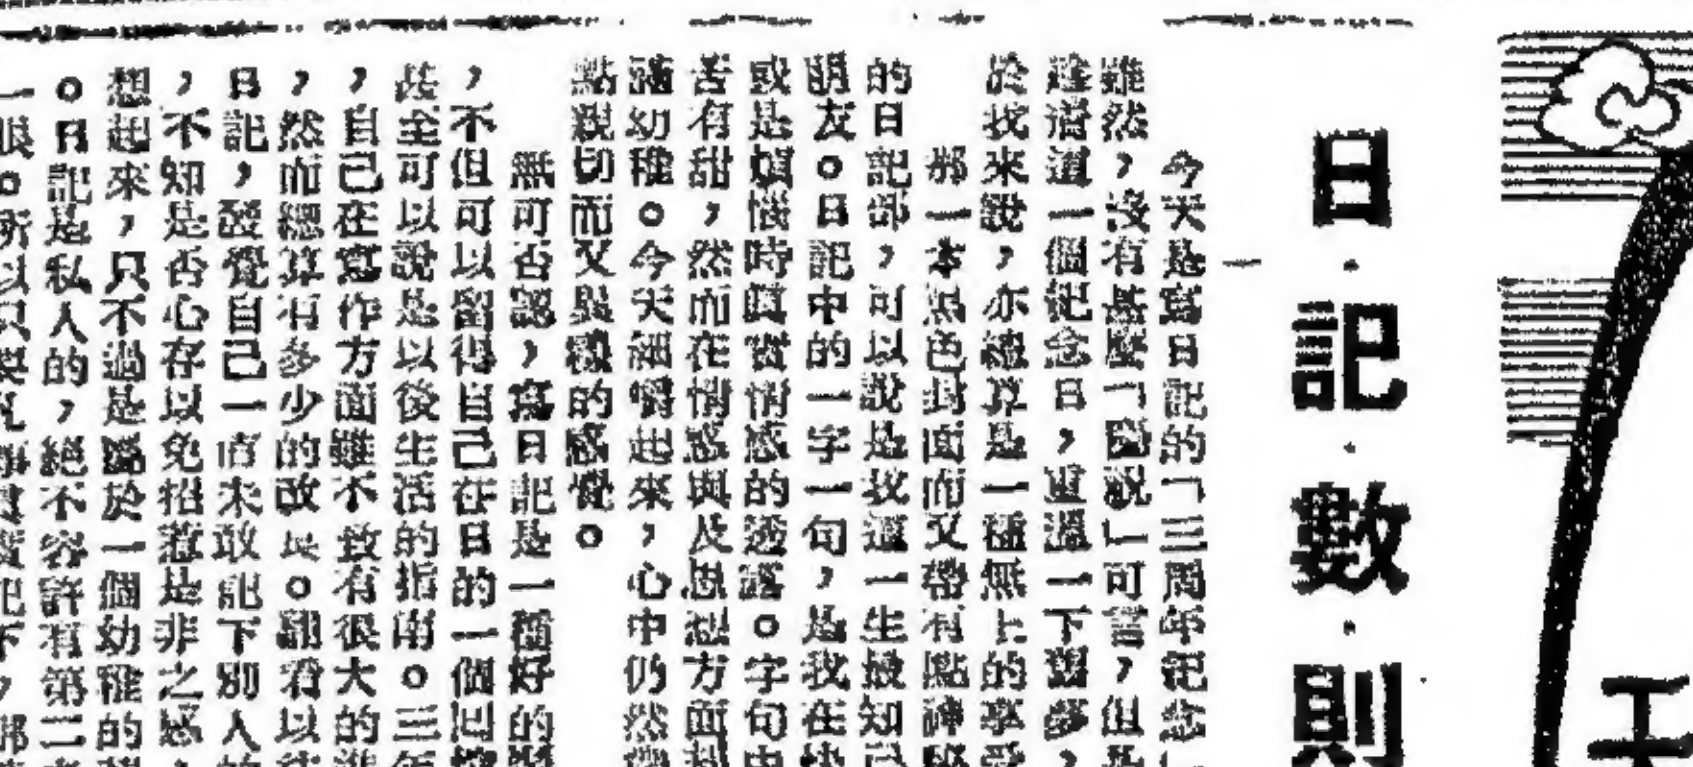 日·記·數·則
一
今天是寫日記的「三周年記念」
雖然，沒有甚麼「慶祝」可言，但是
逢着這一個紀念日，重溫一下舊夢，
於我來說，亦總算是一種無上的享受
那一本黑色封面而又帶有點神秘
的日記部，可以說是我這一生最知己
朋友。日記中的一字一句，是我在快
或是煩惱時眞實情感的透露。字句中
苦有甜，然而在情感與及思想方面却
誦幼稚。今天細嚼起來，心中仍然
點親切而又異樣的感覺。
無可否認，寫日記是一種好的
，不但可以留得自己在日的一個回憶
甚至可以說是以後生活的指南。三年
，自己在寫作方面雖不致有很大的進
，然而總算有多少的改良。翻看以往
日記，發覺自己一直未敢記下別人的
，不知是否心存以免招惹是非之感，
想起來，只不過是屬於一個幼稚的
。日記是私人的，絕不容許有第二者
一眼。所以只要凡事眞實記下，那